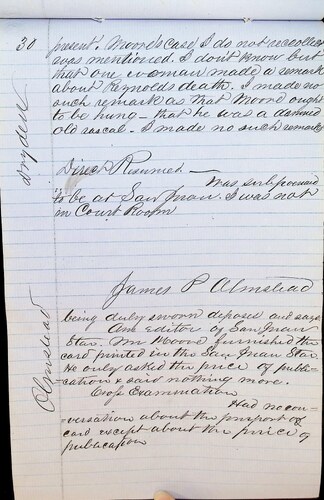 30
present. Moore's case, I do not recollect
was mentioned. I don't know but
that one woman made a remark
about Reynolds death. I made no
such remark as that Moore ought
to be hung - that he was a damned
old rascal. I made no such remarks
Dryden
Direct Resumed
Was subpoenaed
to be at San Juan. I was not
in Court Room
James P Olmstead
Olmstead
being duly sworn deposes and says
Am Editor of San Juan
Star. Mr Moore furnished the
card printed in the San Juan Star.
He only asked the price of publi-
cation & said nothing more.
Cross Examination
Had no con-
versation about the purport of
card except about the price of
publication